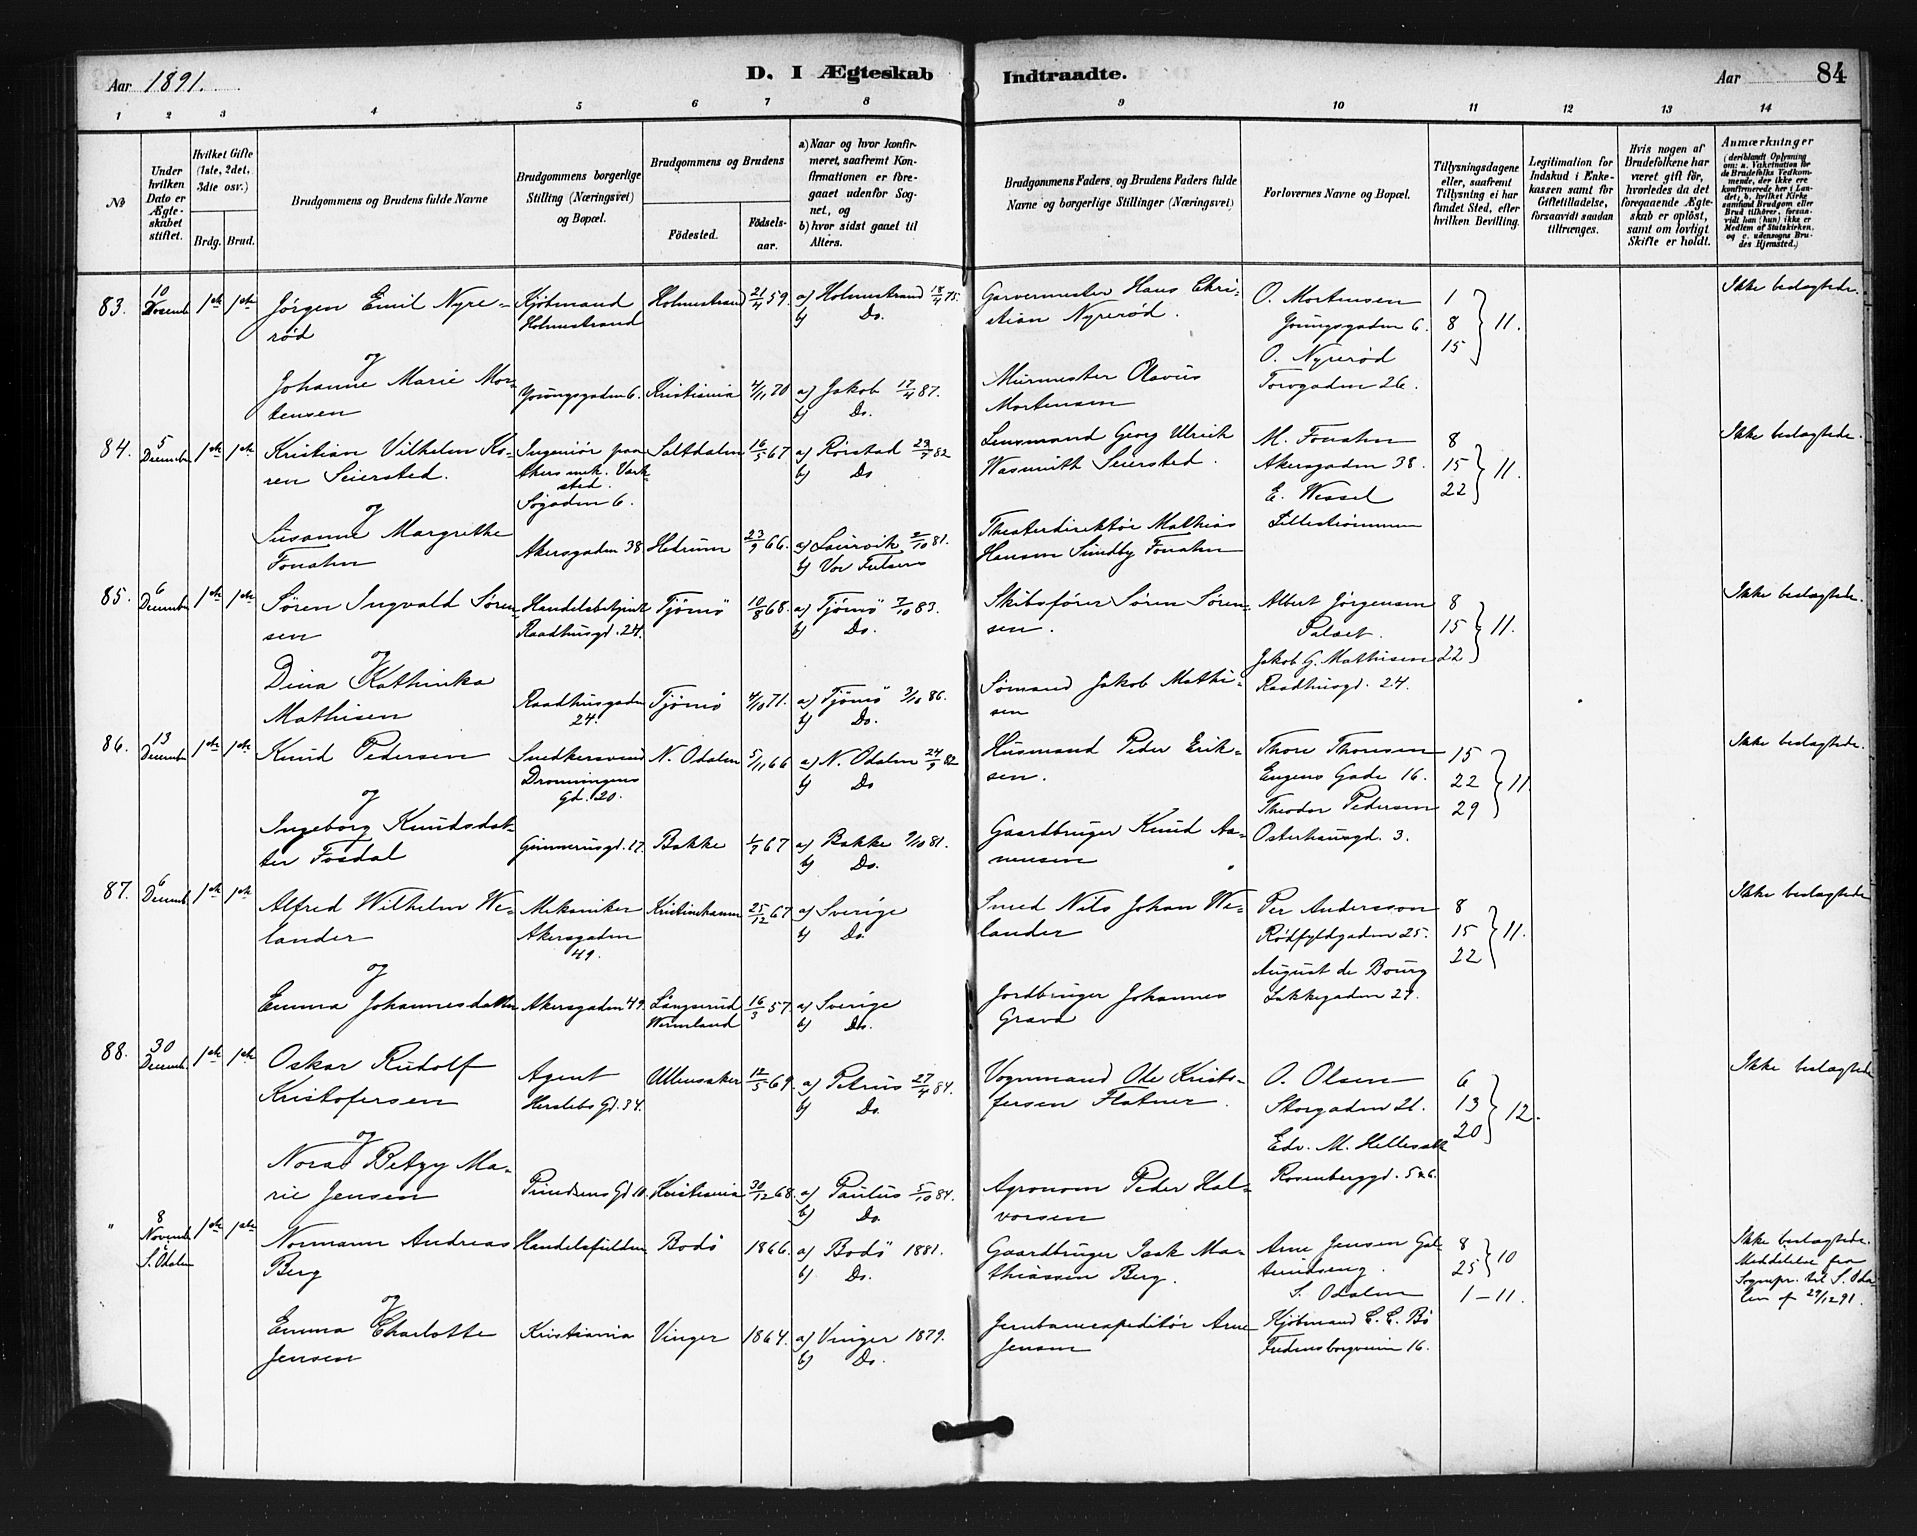 Aar 1891.
D. I Ægteskab Indtraadte.
Aar 84
1 2 3 4 5 6 7 8 9 10 11 12 13 14
No
Under hvilken Dato er Ægteskabet stiftet.
Hvilket Gifte (1ste, 2det, 3die osv.)
Brdg. Brud.
Brudgommens og Brudens fulde Navne
Brudgommens borgerlige Stilling (Næringsvei) og Bopæl.
Brudgommens og Brudens
Fødested. Fødsels-aar.
a) Naar og hvor konfirmeret, saafremt Konfirmationen er foregaaet udenfor Sognet, og
b) hvor sidst gaaet til Alters.
Brudgommens Faders og Brudens Faders fulde Navne og borgerlige Stillinger (Næringsvei)
Forlovernes Navne og Bopæl.
Tillysningsdagene eller, saafremt Tillysning ei har fundet Sted, efter hvilken Bevilling.
Legitimation for Indskud i Enkekassen samt for Giftetilladelse, forsaavidt saadan tiltrænges.
Hvis nogen af Brudefolkene har været gift før, hvorledes da det foregaaende Ægteskab er opløst, samt om lovligt Skifte er holdt.
Anmærkninger
(deriblandt Oplysning om: a. Vakcination for de Brudefolks Vedkommende, der ikke ere konfirmerede her i Landet, b. hvilket Kirkesamfund Brudgom eller Brud tilhører, forsaavidt han (hun) ikke er Medlem af Statskirken, og c. udensogns Brudes Hjemsted.)
83. 10 Decemb 1ste 1ste Jørgen Emil Nyre-
rød
Kjøbmand
Holmestrand
Holmestrand 21/4 59. a) Holmestrand 18/4 75.
b) Do.
Garvermester Hans Chri-
stian Nyrerød.
O. Mortensen
Youngsgaden 6.
O. Nyrerød
Torvgaden 26.
1
8
15 } 11.
Ikke beslægtede.
og
Johanne Marie Mor-
tensen
Youngsgaden 6. Kristiania 4/11 70 a) Jakob 17/4 87.
b) Do.
Murmester Olavus
Mortensen
84. 5 Decemb 1ste 1ste Kristian Vilhelm Ko-
ren Seiersted.
Ingeniør paa
Akers mek. Værk-
sted.
Søgaden 6.
Saltdalen 16/5 67 a) Rørstad 23/7 82
b) Do
Lensmand Georg Ulrich
Wasmuth Seiersted.
M. Fonahn
Akersgaden 38.
E. Wessel
Lillestrømmen
8
15
22 } 11.
Ikke beslægtede.
og
Susanne Margrethe
Fonahn
Akersgaden 38 Hedrum 23/9 66. a) Laurvik 2/10 81.
b) Vor Frelsers
Theaterdirektør Mathias
Hansen Sundby Fonahn
85. 6 Decemb 1ste 1ste Søren Ingvald Søren-
sen
Handelsbetjent
Raadhusgd. 24.
Tjømø 10/8 68. a) Tjømø 7/10 83.
b) Do.
Skibsfører Søren Søren-
sen.
Albert Jørgensen
Palæet.
Jakob G. Mathisen
Raadhusgd. 24.
8
15
22 } 11.
Ikke beslægtede.
og
Dina Kathinka
Mathisen
Raadhusgaden
24.
Tjømø 4/10 71. a) Tjømø 3/10 86.
b) Do.
Sømand Jakob Mathi-
sen
86. 13 Decemb 1ste 1ste Knud Pedersen
Snedkersvend
Dronningens
Gd. 20.
N. Odalen 5/11 66 a) N. Odalen 24/9 82
b) Do
Husmand Peder Erik-
sen.
Thore Thoresen
Eugens Gade 16.
Theodor Pedersen
Osterhausgd. 3.
15
22
29 } 11.
Ikke beslægtede.
og
Ingeborg Knudsdat-
ter Fosdal
Gunnerusgd. 17. Bakke 1/7 67 a) Bakke 9/10 81.
b) Do.
Gaardbruger Knud Aa-
nensen
87. 6 Decemb 1ste 1ste Alfred Wilhelm We-
lander
Mekaniker
Akersgaden
49.
Kristinehamn 25/12 67 a) Sverige
b) Do.
Smed Nils Johan We-
lander
Per Andersson
Rødfyldgaden 25.
August de Bourg
Lakkegaden 27.
8
15
22 } 11.
Ikke beslægtede
og
Emma Johannesdatter Akersgaden 49. Långserud
Wermland
16/3 57. a) Sverige
b) Do.
Jordbruger Johannes
Grava
88. 30 Decemb 1ste 1ste Oskar Rudolf
Kristofersen
Agent
Herslebs Gd. 34.
Ullensaker 12/5 69. a) Petrus 27/4 84.
b) Do.
Vognmand Ole Kristo-
fersen Flatner.
O. Olsen
Storgaden 21.
Edv. M. Hellesalk
Rosenberggd. 5&6.
6
13
20 } 12.
Ikke beslægtede
og
Nora Betzy Ma-
rie Jensen
Pundsens Gd 10. Kristiania 30/12 68. a) Paulus 5/10 84.
b) Do
Agronom Peder Hal-
vorsen
" 8 Novemb
i
S. Odalen
1ste 1ste Normann Andreas
Berg
Handelsfuldm. Bodø 1866. a) Bodø 1881.
b) Do.
Gaardbruger Isak Ma-
thiassen Berg.
Arne Jensen Gal-
terudseng.
S. Odalen
Kjøbmand E. E. Bø
Fredensborgveien 16.
8
25 } 10
1 — 11.
Ikke beslægtede.
Meddelelse fra
Sognepr. til S. Oda-
len af 29/12 91.
og
Emma Charlotte
Jensen
Kristiania Vinger 1864. a) Vinger 1879.
b) Do.
Jernbaneexpeditør Arne
Jensen